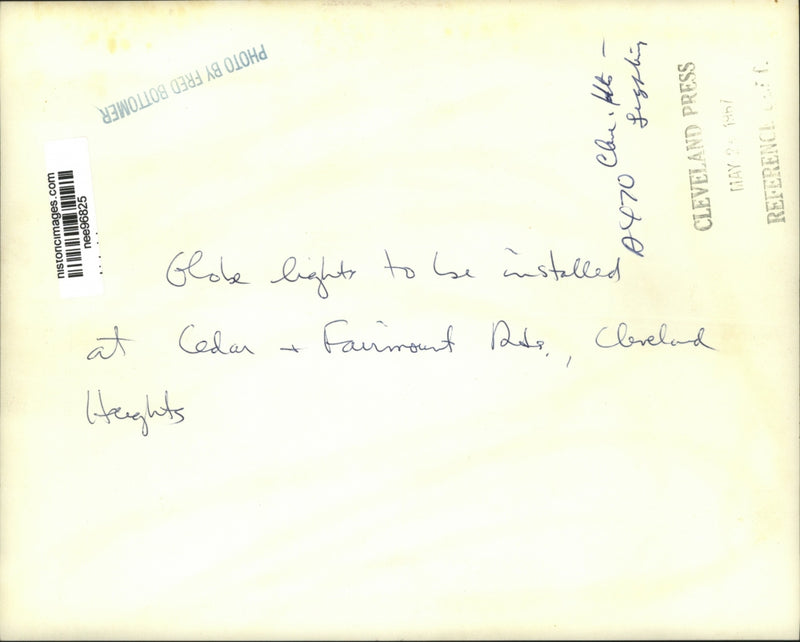 PHOTO BY FRED BOTTOMER
Cleve. Hts —
Lighting
A470
CLEVELAND PRESS
MAY 1967
REFERENCE
historicimages.com
nee96825
Globe lights to be installed
at Cedar + Fairmount Rds., Cleveland
Heights